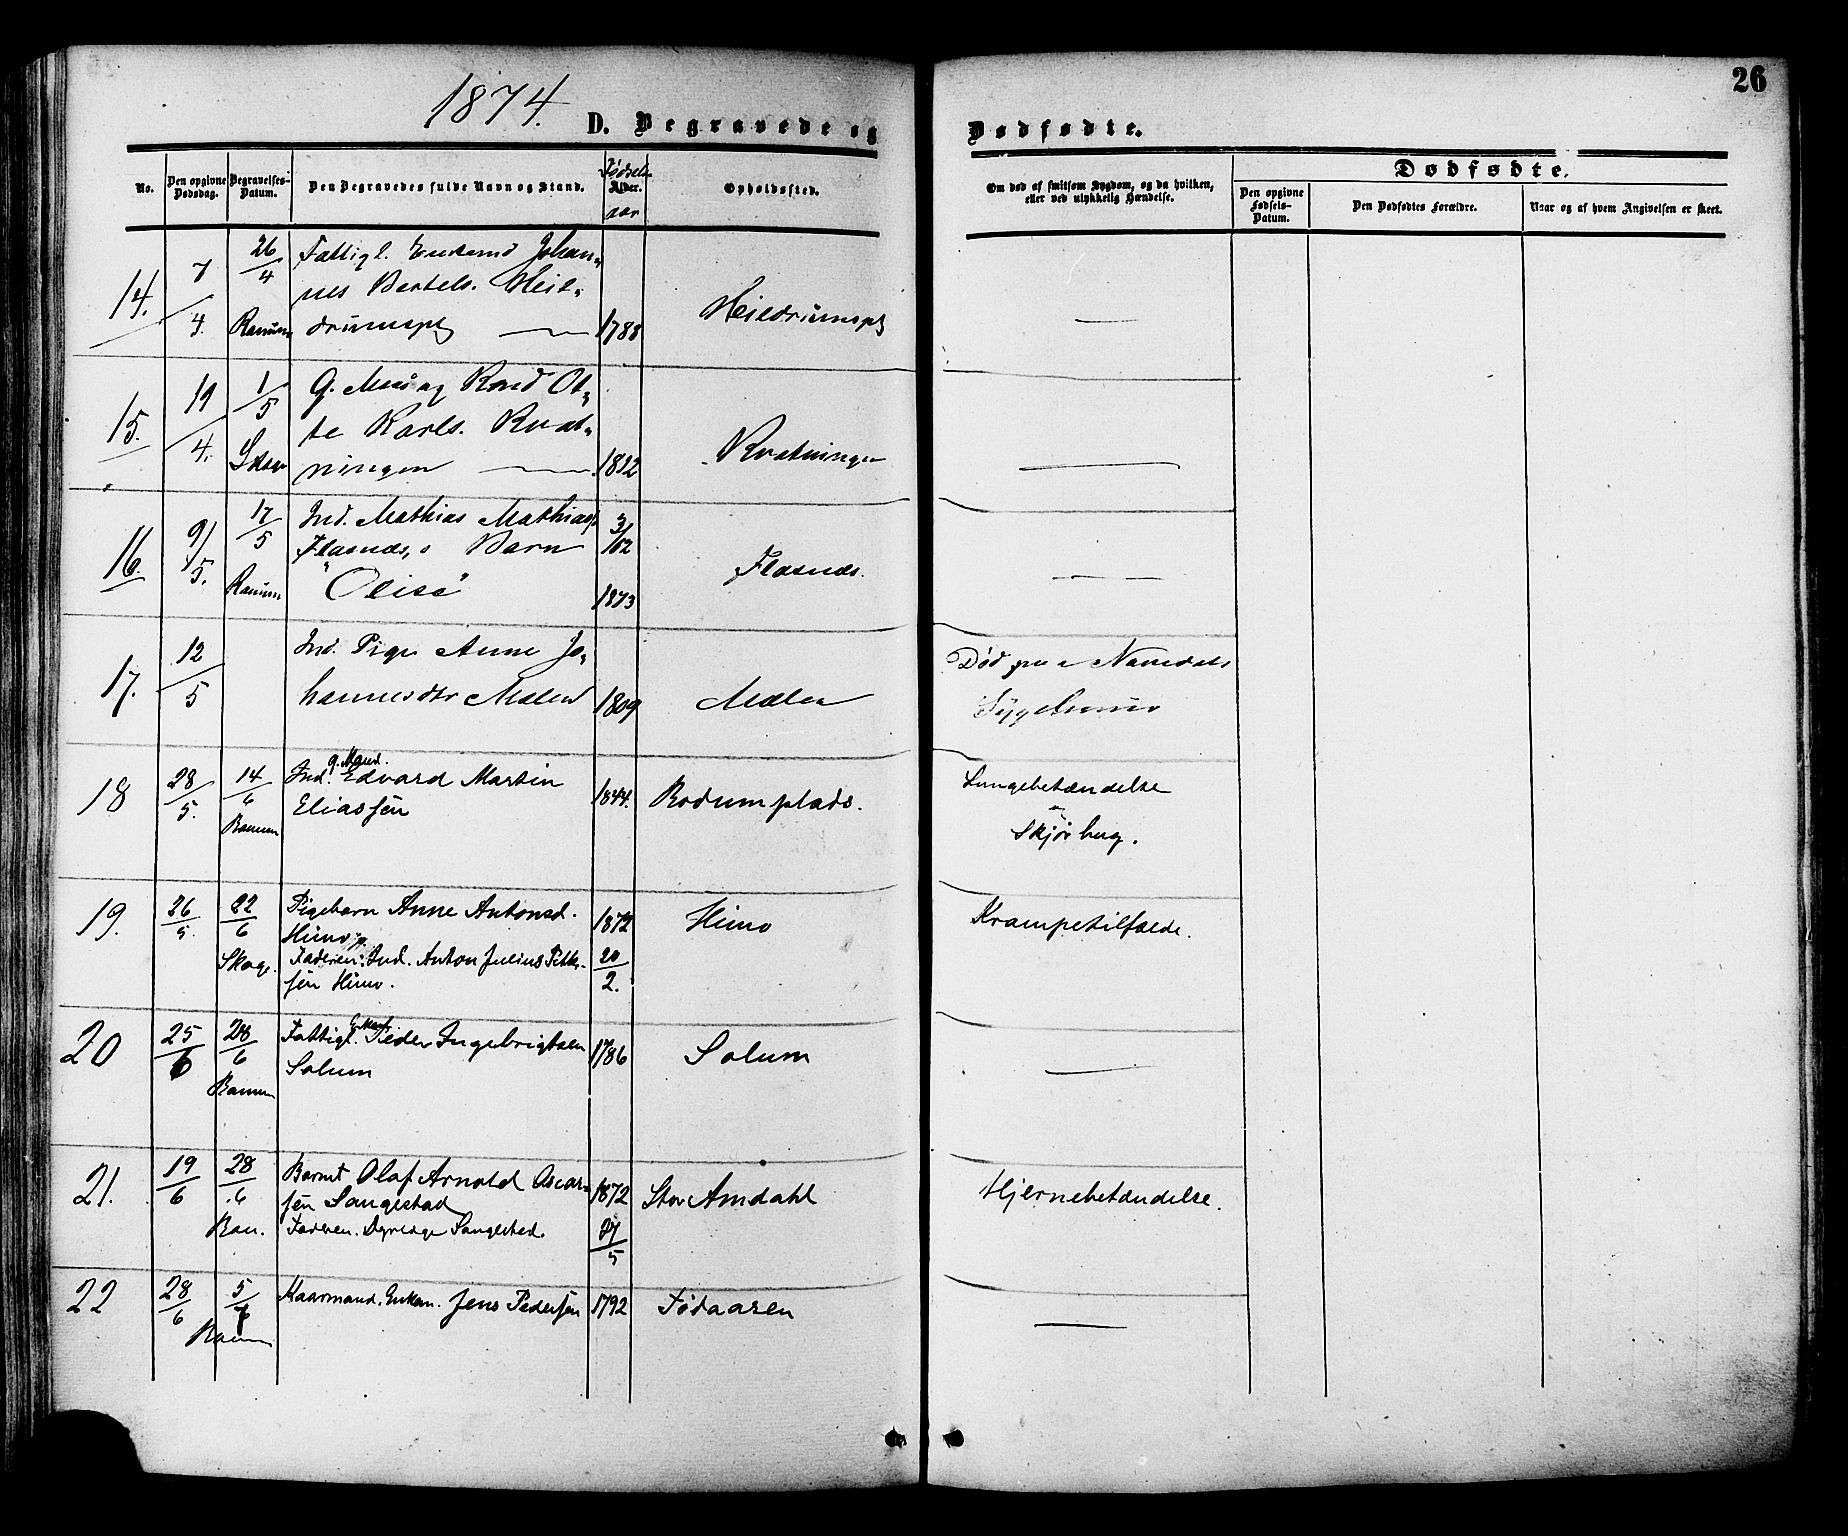 26
1874.
D. Begravede og
Dødfødte.
No.
Den opgivne Dødsdag.
Begravelses-Datum.
Den Begravedes fulde Navn og Stand.
Fødsels
Alder.
aar
Opholdssted.
Om død af smitsom Sygdom, og da hvilken,
eller ved ulykkelig Hændelse.
Dødfødte.
Den opgivne Fødsels-Datum.
Den Dødfødtes Forældre.
Naar og af hvem Angivelsen er skeet.
14.
7/4.
26/4
Ranum
Fattigl. Enkemd Johan-
nes Bertels. Heil-
drumspl
1788
Heildrumspl
15.
19/4.
1/5
Skage
Ot-
te Karls. Kvat-
ningen
1812
Kvatningen
16.
9/5.
17/5
Ranum
Ind. Mathias Mathias.
Flasnæs,s Barn
"Olise"
3/12
1873
Flasnæs.
17.
12/5
Ind. Pige Anne Jo-
hannesdtr Mælen
1809
Mælen
Død paa Namdals
Sygehuus
18
28/5.
14/6
Ranum
g. Mand.
Ind. Edvard Martin
Eliassen
1844.
Rodumplads.
Lungebetændelse
Skjørbug.
19.
26/5
22/6
Skage.
Pigebarn Anne Antonsd.
Himo
Faderen: Ind. Anton Julius Petter-
sen Himo.
1872
20/2.
Himo
Krampetilfælde.
20
25/6
28/6
Ranum
Fattigl. Peder Ingebrigtsen
Solum
1786
Solum
21.
19/6
28/6
Ran.
Barnet Olaf Arnold Oscar-
sen Sangestad
Faderen. Dyrlæge Sangestad.
1872
27/5
Stor Amdahl
Hjernebetændelse.
22
28/6
5/7
Ranum
Kaarmand. Enkem. Jens Pedersen
1792
Fødaaren